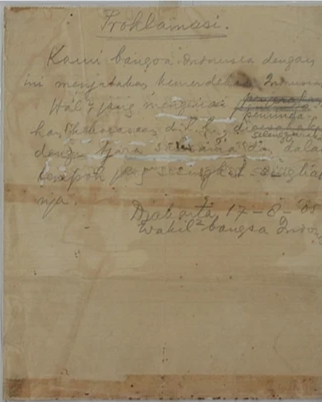 Proklamasi.
Kami bangsa Indonesia dengan
ini menjatakan kemerdekaan Indonesia
Hal2 jang mengenai
kekoeasaan d.l.l.,
dengan tjara saksama dan dalam
tempoh jang sesingkat-singkat
nja.
Djakarta, 17 - 8 - '05
Wakil2 bangsa Indon